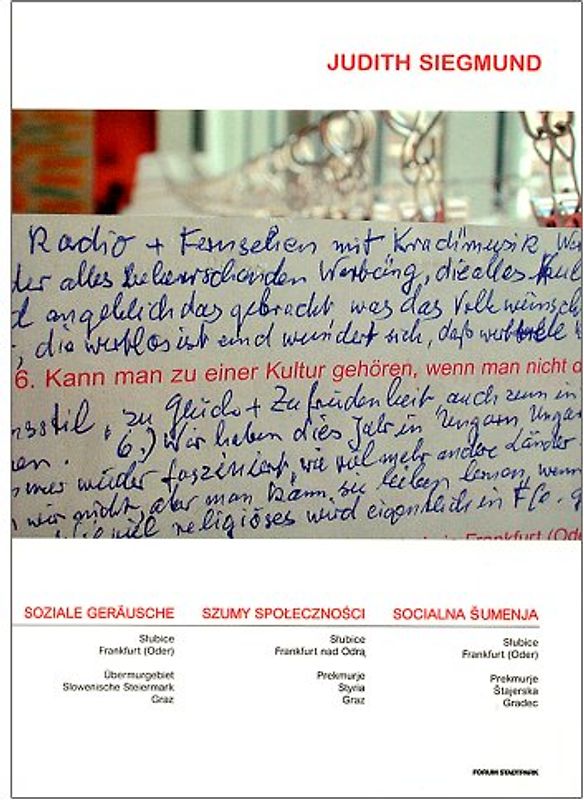 JUDITH SIEGMUND
Radio + Fernsehen mit
der alles beherrschenden Werbung, die alles
angeblich das gebracht was das Volk wünsch
, die wertlos ist und wundert sich, daß
6. Kann man zu einer Kultur gehören, wenn man nicht d
nsstil, zu Glück + Zufriedenheit auch zum in
en. 6.) Wir haben dies Jahr in Ungarn
mmer wieder fasziniert, wie viel mehr andere Länder
wir nicht, aber man kann sie lieben lernen, wenn
viel religiöses wird eigentlich in FfO.
Frankfurt (Od
SOZIALE GERÄUSCHE
Słubice
Frankfurt (Oder)
Übermurgebiet
Slowenische Steiermark
Graz
SZUMY SPOŁECZNOŚCI
Słubice
Frankfurt nad Odrą
Prekmurje
Styria
Graz
SOCIALNA ŠUMENJA
Słubice
Frankfurt (Oder)
Prekmurje
Štajerska
Gradec
FORUM STADTPARK